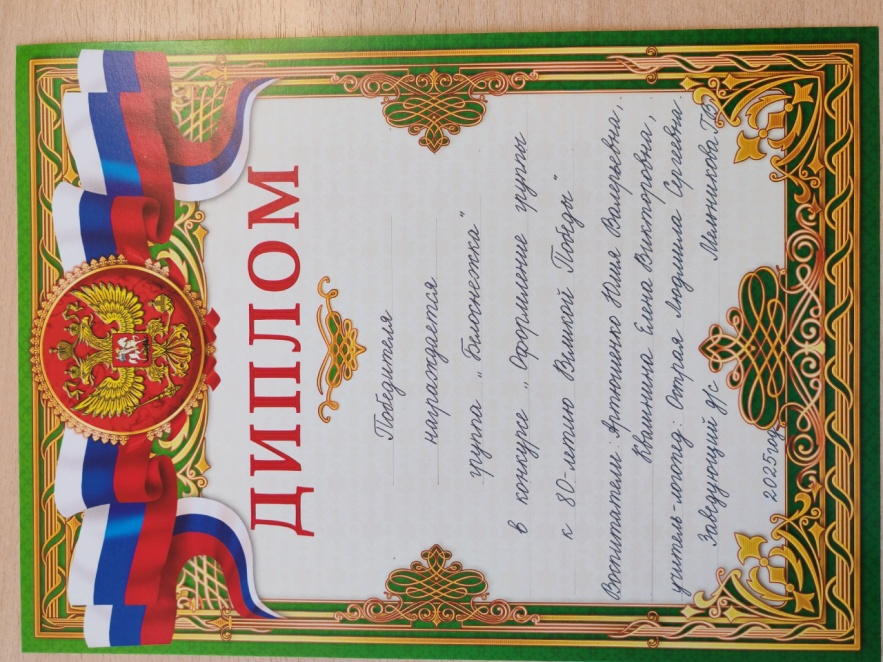 ДИПЛОМ
Победителя
награждается
группа „Белоснежка"
в конкурсе „Оформление группы
к 80-летию Великой Победы"
Воспитатели: Артюшенко Юлия Валерьевна,
Квашнина Елена Викторовна,
учитель-логопед: Острая Людмила Сергеевна.
Заведующий д/с Мельникова Г.В.
2025год